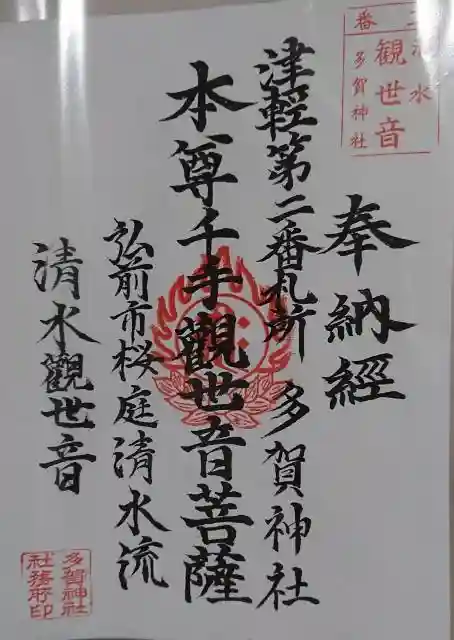 奉納經
津輕第二番札所 多賀神社
本尊千手觀世音菩薩
弘前市桜庭清水流
清水觀世音
清水
観世音
多賀神社
多賀神社
社務所印